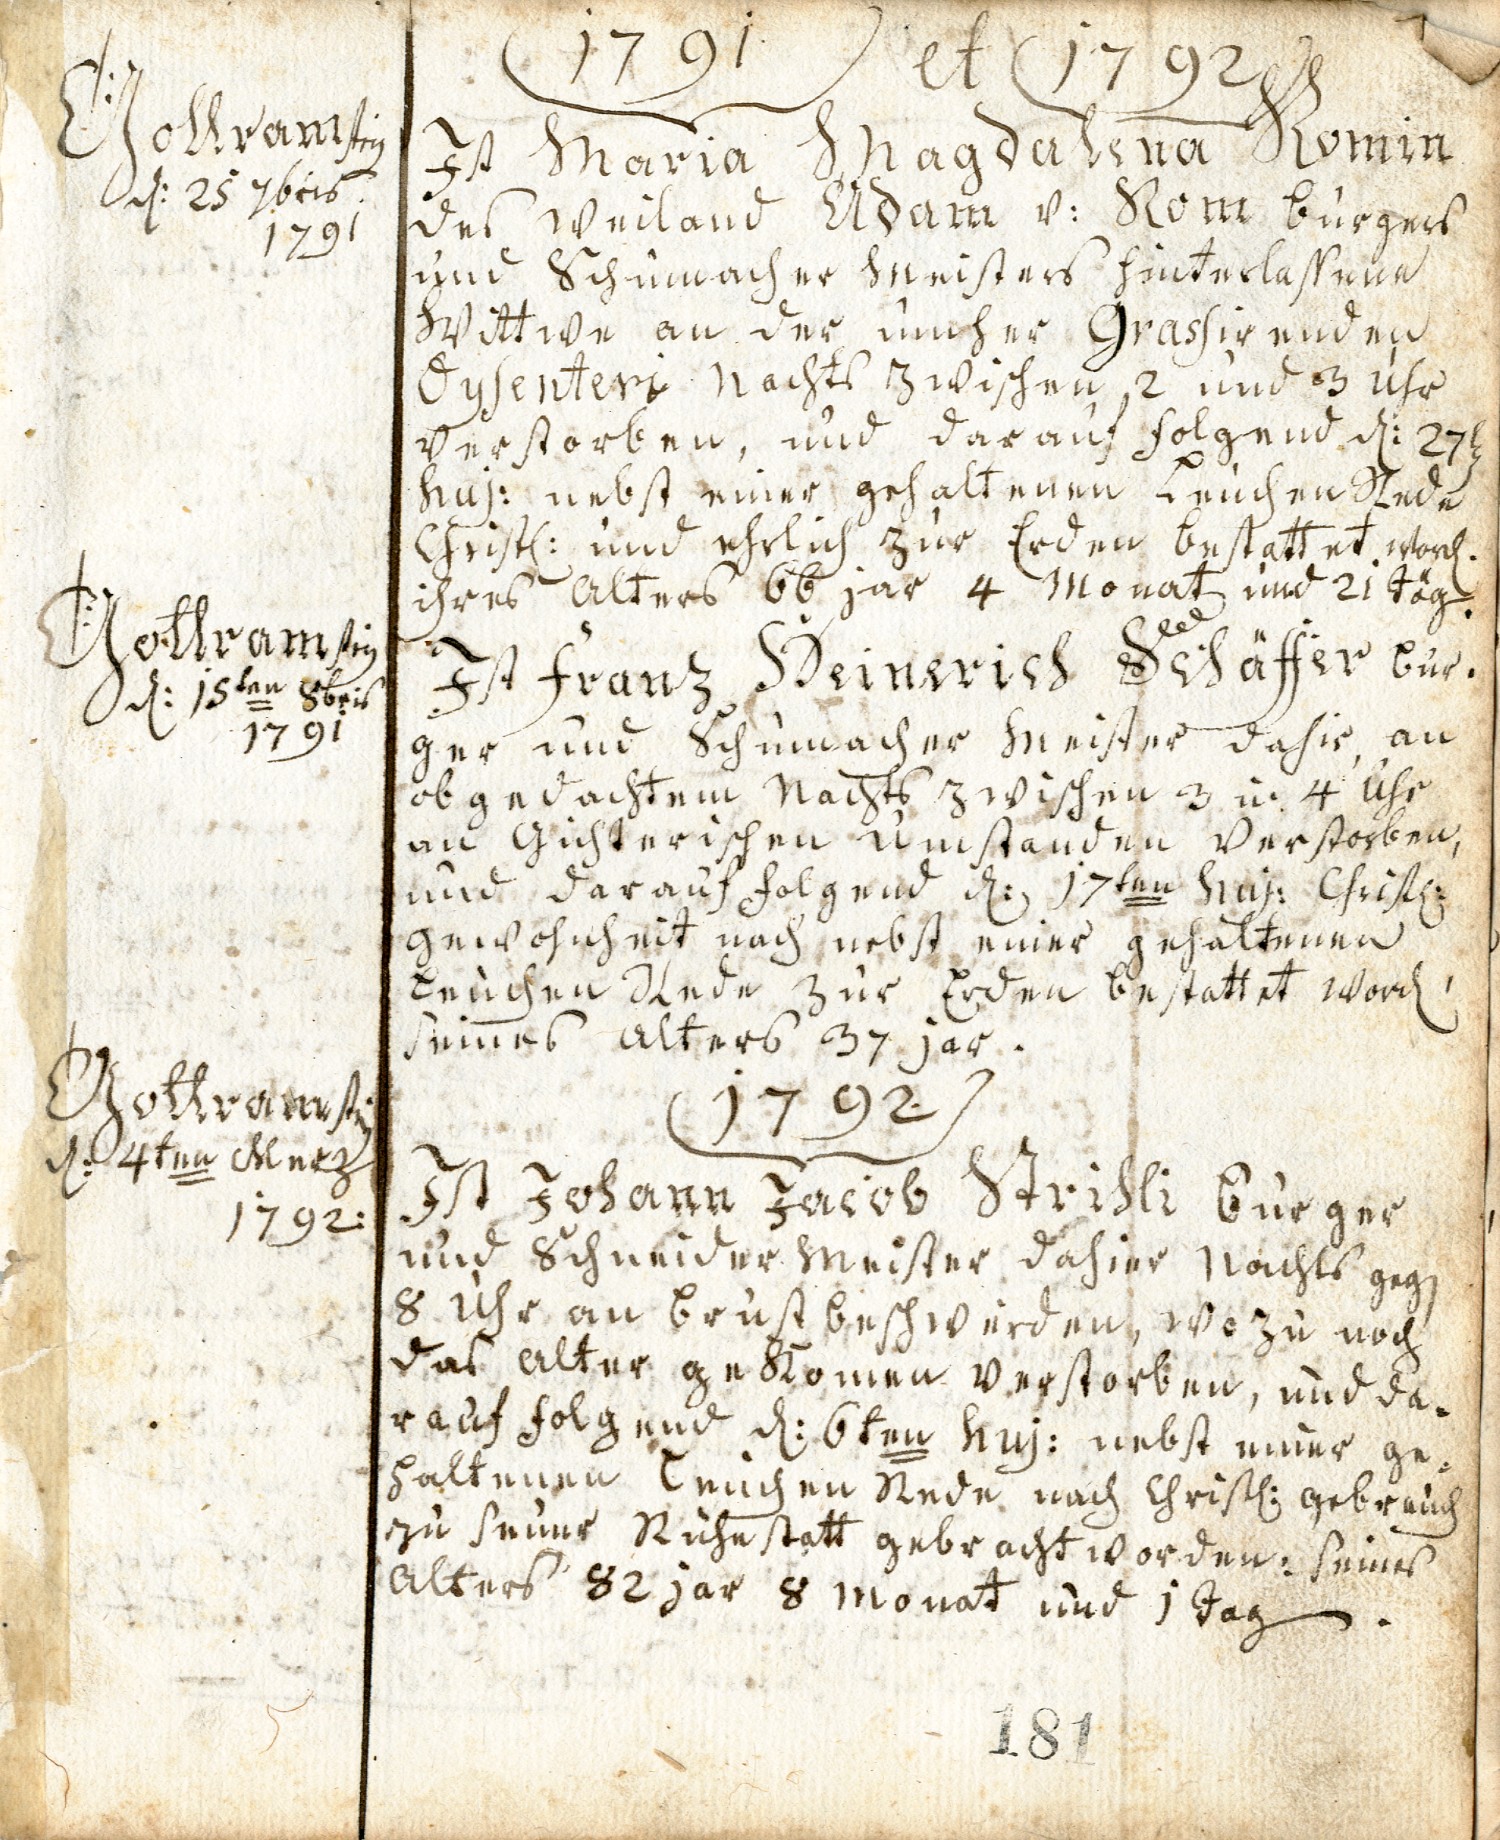 1791 et 1792
Gottramstein
d: 25 7bris
1791
Ist Maria Magdalena Romin
des weiland Adam v: Rom burgers
und Schumacher Meisters hinterlassene
Wittwe an der umher Grassirenden
Dysenteri Nachts zwischen 2 und 3 Uhr
verstorben, und darauf folgend d: 27t
huj: nebst einer gehaltenen Leuchen Rede
Christl: und ehrlich zur Erden bestattet word.
ihres Alters 66 jar 4 Monat und 21 täg.
Gottramstein
d: 15ten 8bris
1791
Ist Franz Heinerich Schäffer bur-
ger und Schumacher Meister dahir, an
obgedachtem Nachts zwischen 3 u: 4 Uhr
an Gichterischen Umstanden verstorben,
und darauf folgend d: 17ten huj: Christl:
gewohnheit nach nebst einer gehaltenen
Leuchen Rede zur Erden bestattet word
seines Alters 37 jar.
1792
Gottramstein
d: 4ten Merz
1792:
Ist Johann Jacob Strihli burger
und Schneider Meister dahier Nachts geg
8 Uhr an brustbeschwerden, wozu noch
das Alter geKomen verstorben, und da-
rauf folgend d: 6ten huj: nebst einer ge-
haltenen Leuchen Rede nach Christl: gebrauch
zu seiner Ruhestatt gebracht worden: seines
Alters 82 jar 8 Monat und 1 tag.
181